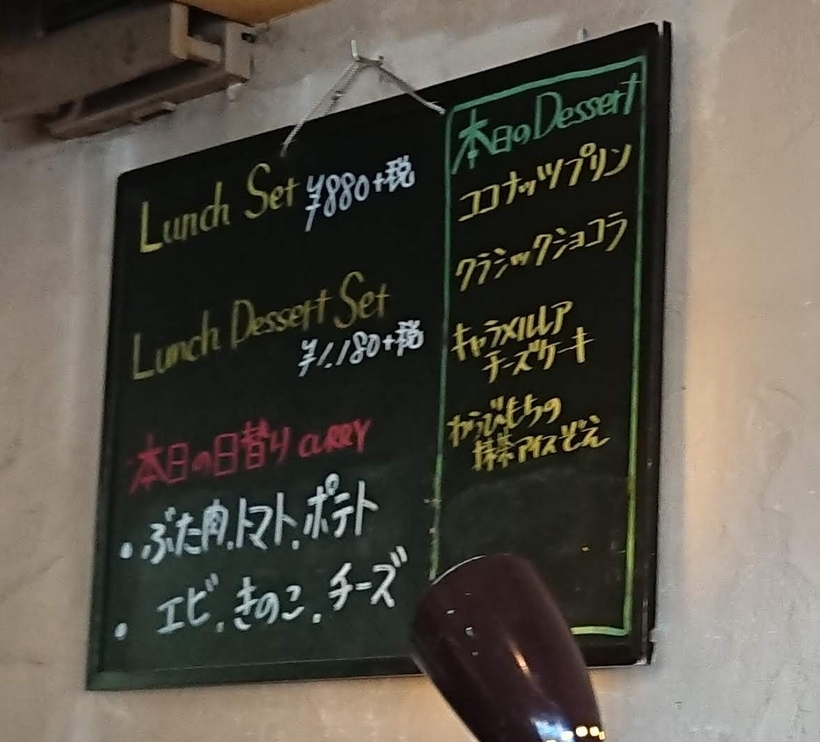 Lunch Set ¥880+税
Lunch Dessert Set
¥1,180+税
本日の日替りcurry
・ぶた肉、トマト、ポテト
・エビ、きのこ、チーズ
本日のDessert
ココナッツプリン
クラシックショコラ
キャラメルレア
チーズケーキ
わらびもちの
抹茶アイスぞえ